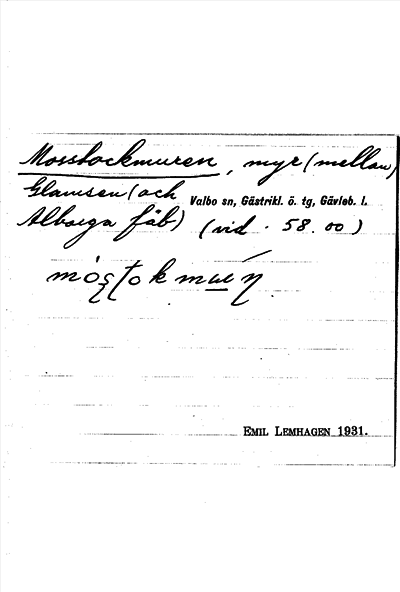 Mosstockmuren, myr (mellan
Glamsen (och Valbo sn, Gästrikl. ö. tg, Gävleb. l.
fäb) (vid 58.00)
EMIL LEMHAGEN 1931.